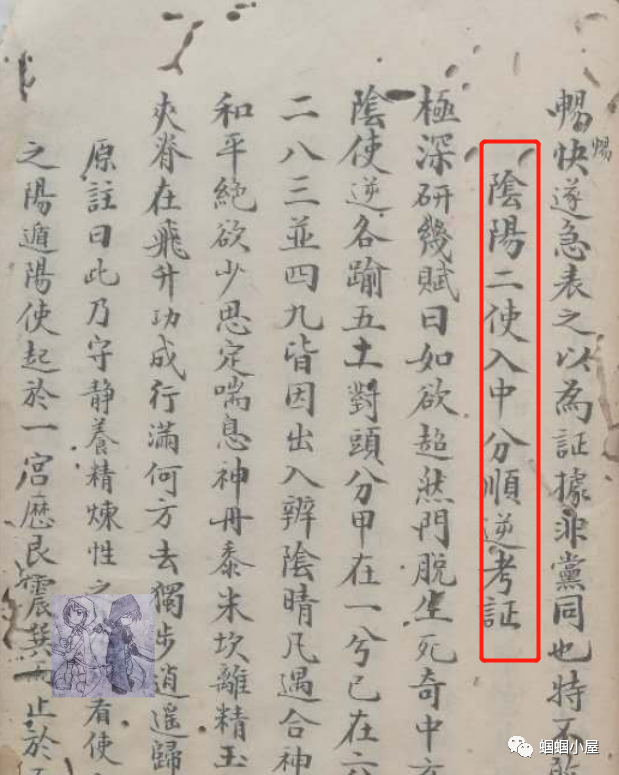 暢快遂急表之以為証據非黨同也特不
惕
陰陽二使入中分順逆考証
極深研幾賦曰如欲超然門脫生死奇中
陰使逆各踰五土對頭分甲在一兮己在六
二八三並四九皆因出入辨陰晴凡遇合神
和平絕欲少思定喘息神丹黍米坎離精玉
夾脊在飛升功成行滿何方去獨步逍遙歸
原註曰此乃守静養精煉性之看使
之陽遁陽使起於一宮歷艮震巽而止於
蝈蝈小屋